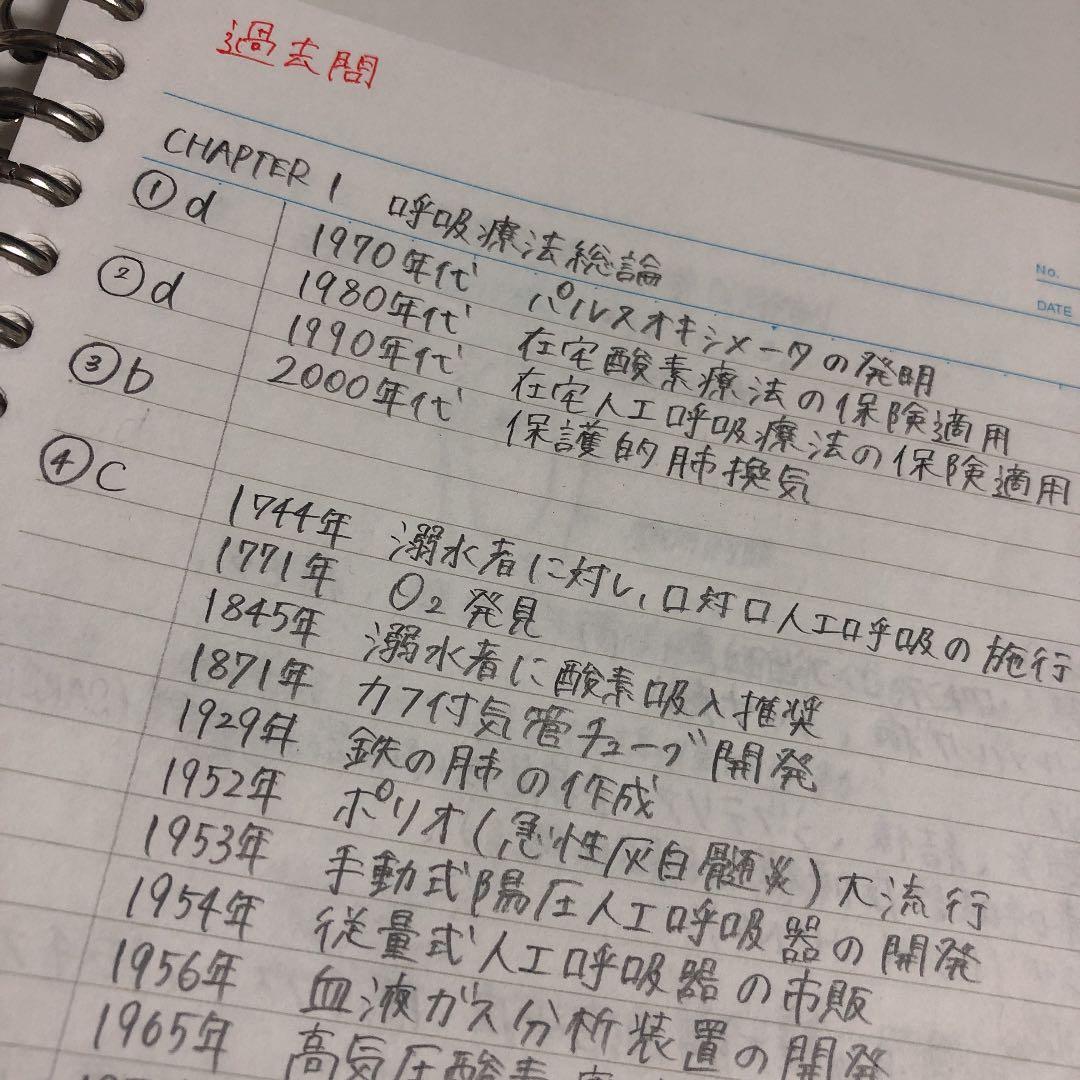 過去問
No.
DATE
CHAPTER 1 呼吸療法総論
① d 1970年代 パルスオキシメータの発明
② d 1980年代 在宅酸素療法の保険適用
1990年代 在宅人工呼吸療法の保険適用
③ b 2000年代 保護的肺換気
④ C
1744年 溺水者に対し、口対口人工呼吸の施行
1771年 O₂発見
1845年 溺水者に酸素吸入推奨
1871年 カフ付気管チューブ開発
1929年 鉄の肺の作成
1952年 ポリオ(急性灰白髄炎)大流行
1953年 手動式陽圧人工呼吸器の開発
1954年 従量式人工呼吸器の市販
1956年 血液ガス分析装置の開発
1965年 高気圧酸素